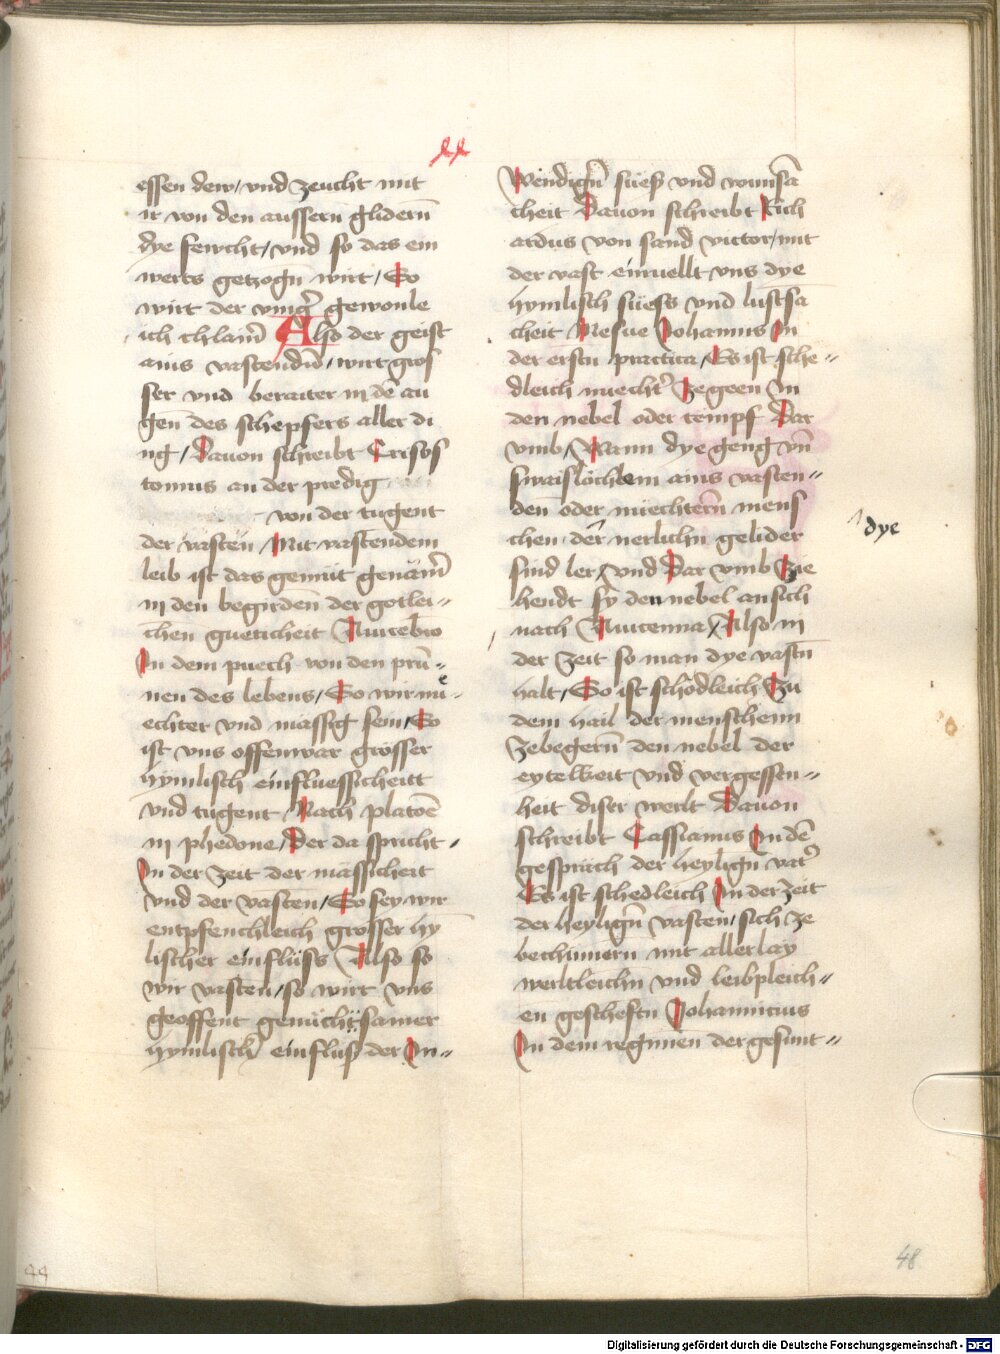 xx
essen dew / vnd zeucht mit
ir von den aussern glidern̄
dye fewcht / vnd so das ein
werts getzogn̄ wirt / So
wirt der gewonle
ich Also der geist
ains vastendn̄ / wirt gros
ser vnd beraiter in dē au
gen̄ des schepfers aller di
ng / Dauon schreibt Crisos
tomus an der predig
von der tugent
der vasten / Mit vastendem
leib ist das gemüt genäm̄
in den begirden̄ der gotlei-
chen gueticheit Auicebro
In dem puech von den prū-
nen des lebens / So wir mü-
echter vnd mässig sein / So
ist vns offenwar grösser
hymlisch einfluessicheitt
vnd tugent Nach platoē
in phedone / Der da spricht /
In der zeit der mässicheit
vnd der vasten / So sey wir
entpfenchleich grosser hy̅
lischer einflüss Also so
wir vasten / so wirt vns
geoffent genüchtsamer
hymlisch̄ einflüss der In-
Wendign̄ süess vnd wunsā
cheit Dauon schreibt Rich
ardus von sand victor / mit
der vast eruuellt vns dye
hymlisch süess vnd lustsā
cheit Mesue Johannis In
der erstn practica / Es ist sche-
dleich niecht̄ Zegeen In
den nebel oder tempf Dar
vmb / Wann dye geng vn̄
swaislöchlein ains vasten-
den oder niechtern̄ mens
chen der nerlichn gelider
sind ler / vnd Dar vmb Zie
hendt sy den nebel an sich
nach Auicenna / Also in
der zeit so man dye vastn̄
halt / So ist schödleich Zu
dem hail der menschenn
Zebegern̄ den nebel der
eytelkeit vnd vergessen-
heit diser werlt Dauon
schreibt Cassianus In dē
gespräch der heylign̄ vat̄
Es ist schedleich In der zeit
der heylign̄ vasten / sich ze
bechümern mit allerlay
werltleichn vnd leibpleich-
en gescheftn Johannicius
In dem regimen der gesunt-
dye
44
48
Digitalisierung gefördert durch die Deutsche Forschungsgemeinschaft - DFG